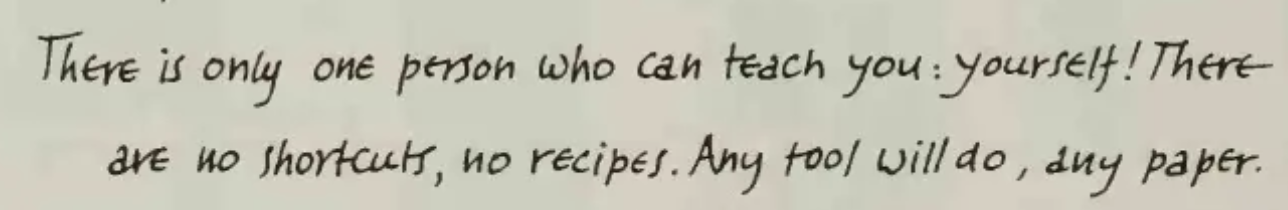 There is only one person who can teach you: yourself! There
are no shortcuts, no recipes. Any tool will do, any paper.